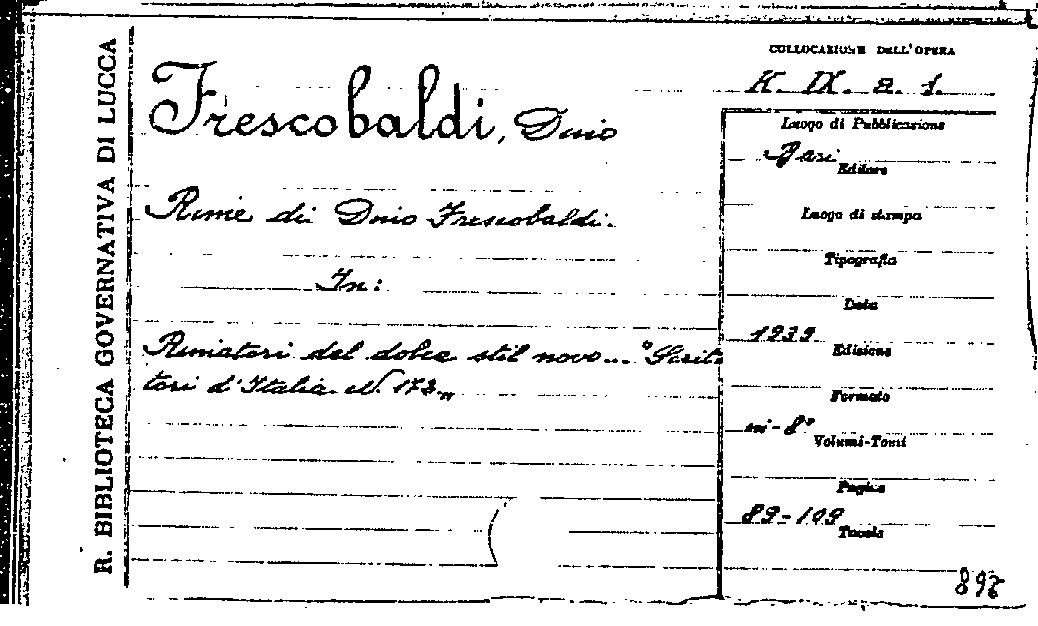 R. BIBLIOTECA GOVERNATIVA DI LUCCA
Frescobaldi, Dino
Rime di Dino Frescobaldi.
In:
Rimatori del dolce stil novo... "Scrit-
tori d'Italia N. 172"
COLLOCAZIONE DELL'OPERA
K. IX. a. 1.
Luogo di Pubblicazione
Bari
Editore
Luogo di stampa
Tipografia
Data
1939
Edizione
Formato
in-8°
Volumi-Tomi
Pagine
89-109
Tavole